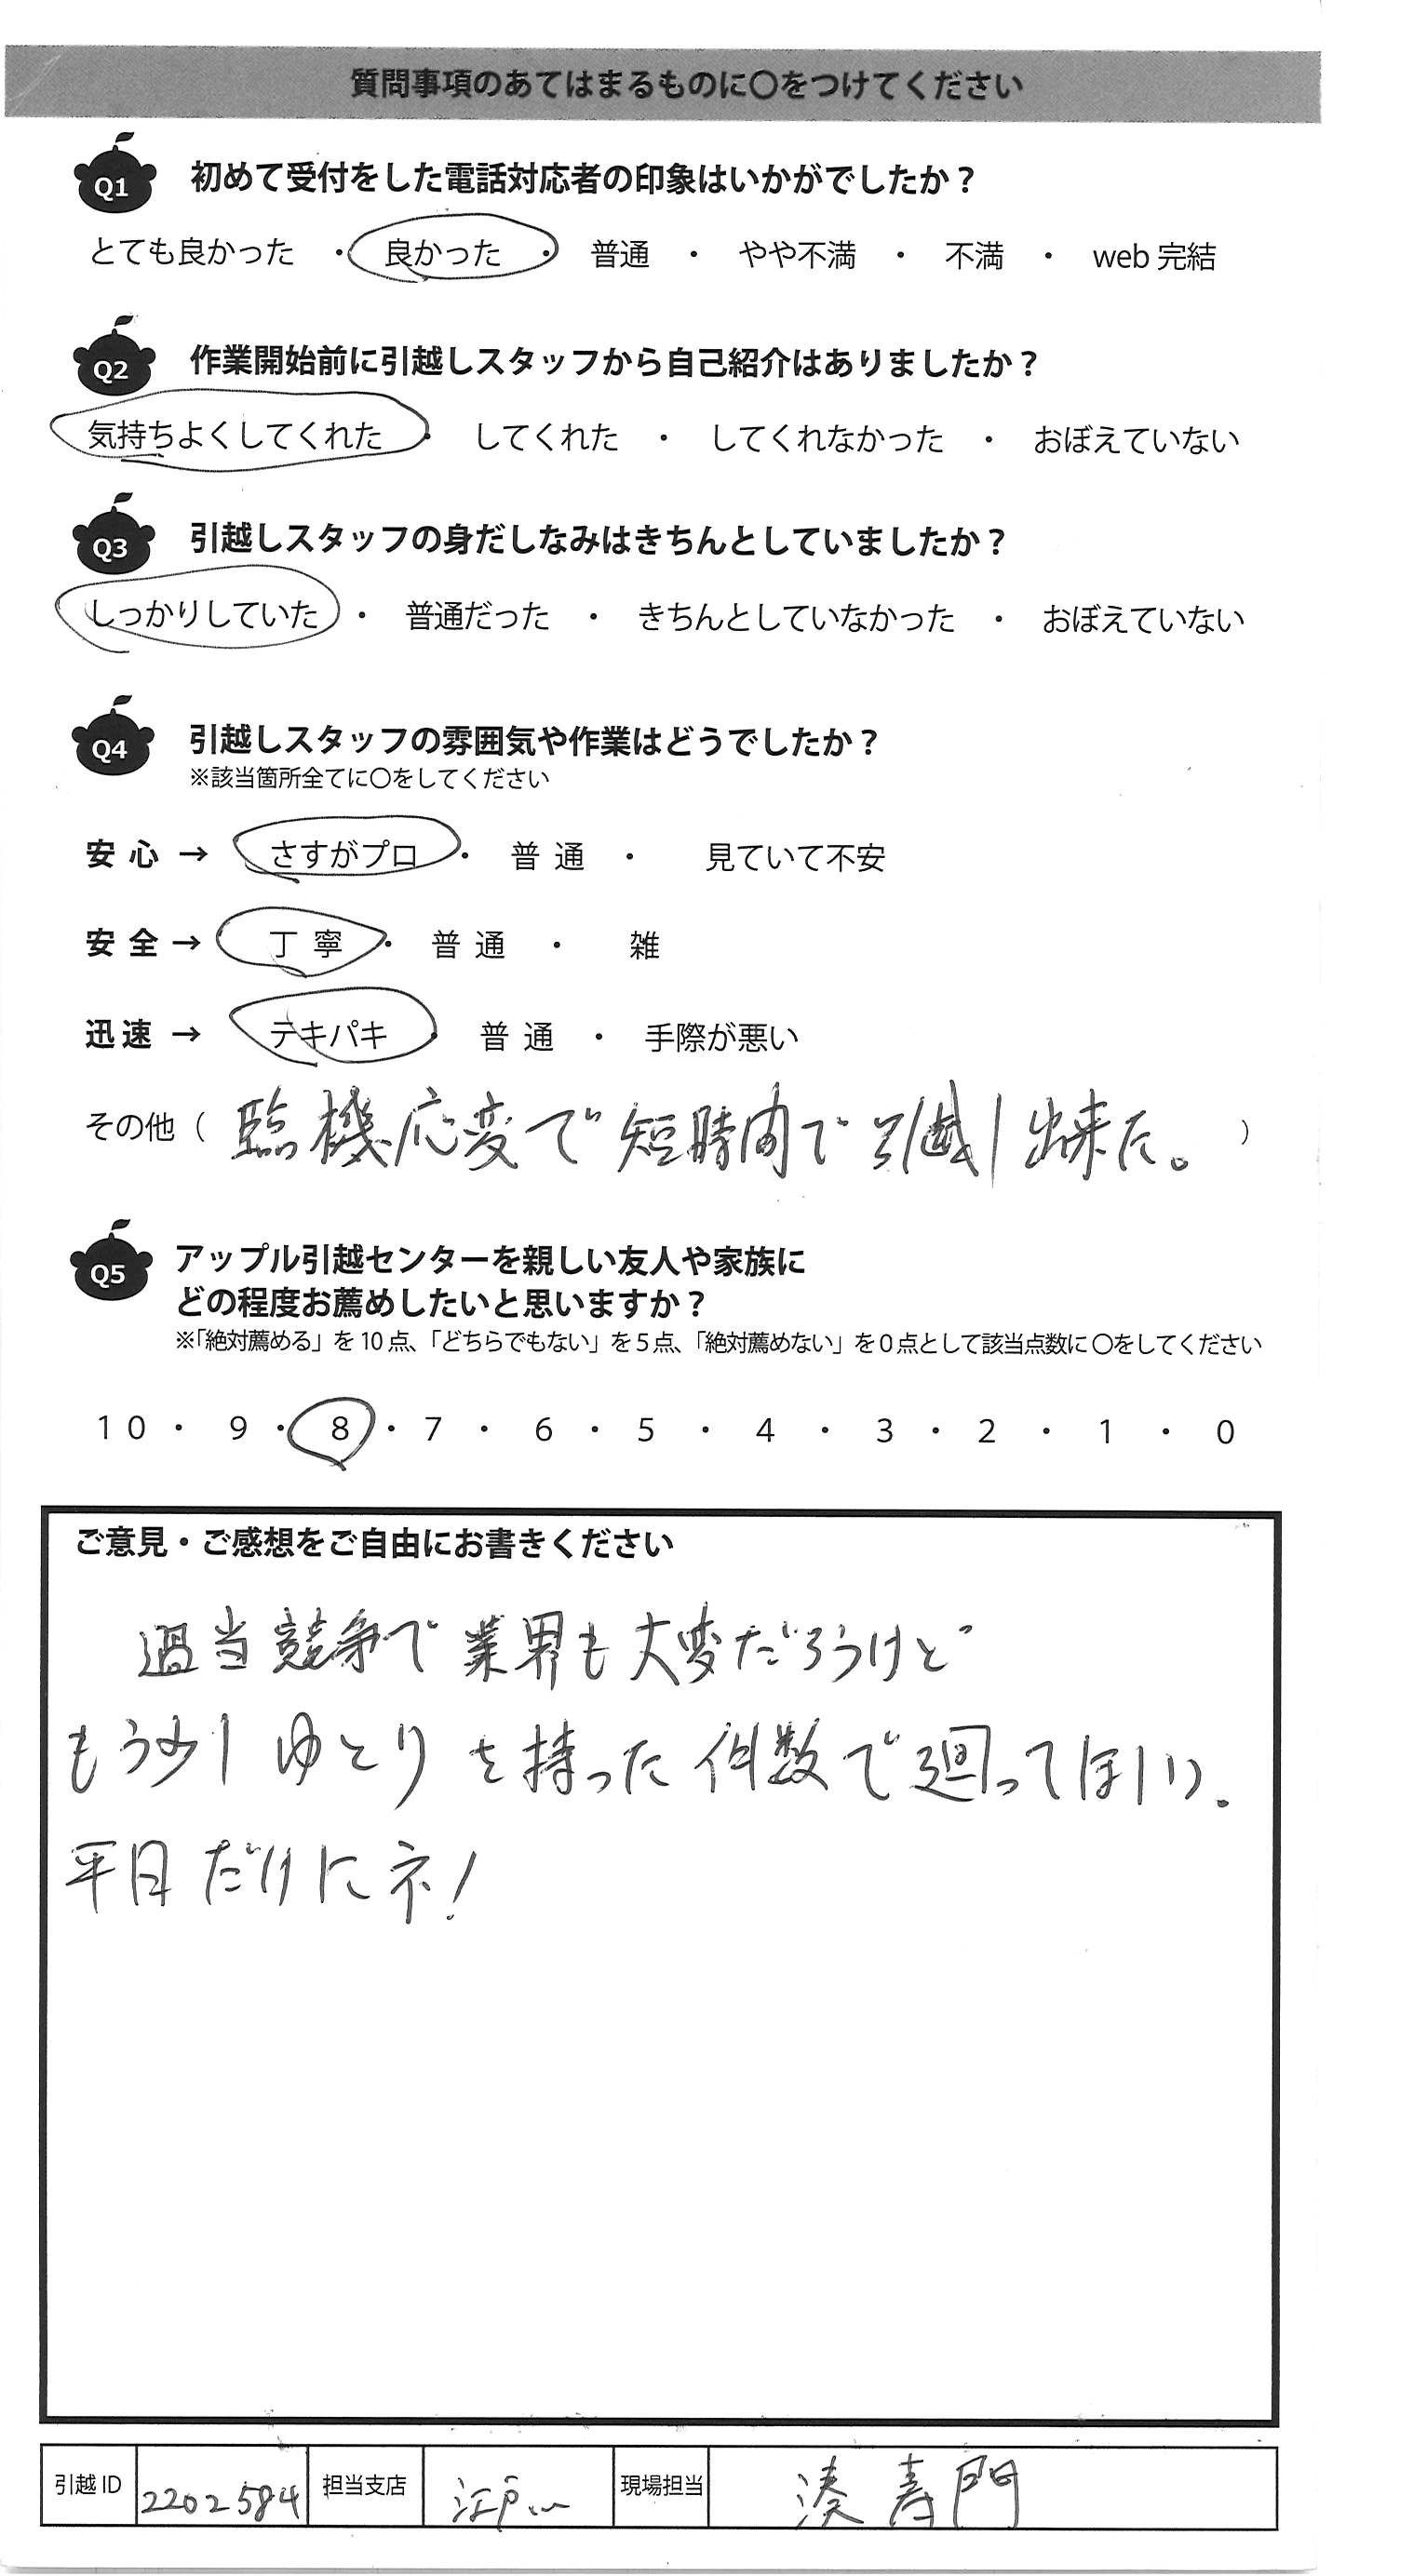 質問事項のあてはまるものに○をつけてください
Q1 初めて受付をした電話対応者の印象はいかがでしたか？
とても良かった ・ 良かった ・ 普通 ・ やや不満 ・ 不満 ・ web 完結
Q2 作業開始前に引越しスタッフから自己紹介はありましたか？
気持ちよくしてくれた ・ してくれた ・ してくれなかった ・ おぼえていない
Q3 引越しスタッフの身だしなみはきちんとしていましたか？
しっかりしていた ・ 普通だった ・ きちんとしていなかった ・ おぼえていない
Q4 引越しスタッフの雰囲気や作業はどうでしたか？
※該当箇所全てに○をしてください
安心 → さすがプロ ・ 普通 ・ 見ていて不安
安全 → 丁寧 ・ 普通 ・ 雑
迅速 → テキパキ ・ 普通 ・ 手際が悪い
その他（ 臨機応変で短時間で引越し出来た。 ）
Q5 アップル引越センターを親しい友人や家族に
どの程度お薦めしたいと思いますか？
※「絶対薦める」を10点、「どちらでもない」を5点、「絶対薦めない」を0点として該当点数に○をしてください
10 ・ 9 ・ 8 ・ 7 ・ 6 ・ 5 ・ 4 ・ 3 ・ 2 ・ 1 ・ 0
ご意見・ご感想をご自由にお書きください
過当競争で業界も大変だろうけど
もう少しゆとりを持った件数で廻ってほしい.
平日だけにネ！
引越ID 2202584 担当支店 江戸 現場担当 湊 寿門